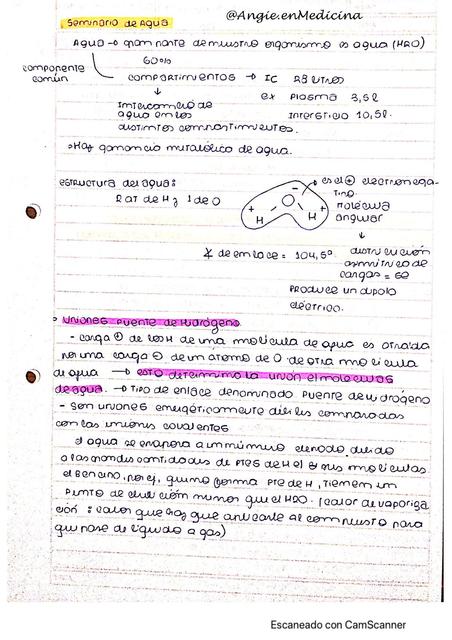 @Angie.enMedicina
Seminario de Agua
Agua → gran parte de nuestro organismo es agua (H2O)
componente
común
60%
compartimentos → IC 28 litros
ex Plasma 3,5 l
Intersticio 10,5 l.
Intercambio de
agua en los
distintos compartimentos.
Hay ganancia metabólica de agua.
estructura del agua:
2 at de H y 1 de O
es el electronega-
tivo.
molécula
angular
- O
+ H H +
∡ de enlace = 104,5°
distribución
asimétrica de
cargas = se
produce un dipolo
eléctrico.
Uniones Puente de Hidrógeno
- carga + de los H de una molécula de agua es atraída
por una carga - de un atomo de O de otra molécula
de agua → esto determina la unión moléculas
de agua. → Tipo de enlace denominado Puente de hidrógeno
- Son uniones energéticamente débiles comparadas
con las uniones covalentes
el agua se evapora a un mínimo elevado debido
a las grandes cantidades de Ptes de H moléculas
el Benceno, por ej, que no forma Pte de H, tienen un
Punto de ebullición menor que el H2O. (calor de vaporiza
ción : calor que hay que al compuesto para
que pase de líquido a gas)
Escaneado con CamScanner